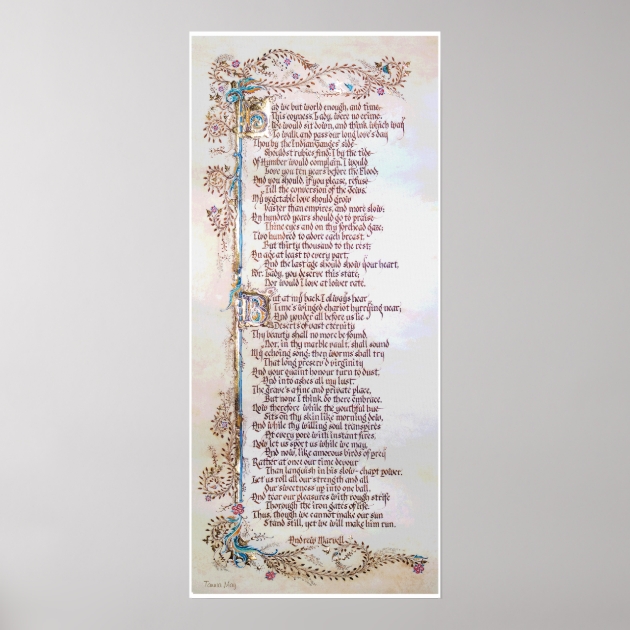 Had we but world enough, and time
This coyness, Lady, were no crime.
We would sit down, and think which way
To walk, and pass our long love's day.
Thou by the Indian Ganges' side
Shouldst rubies find: I by the tide
Of Humber would complain. I would
Love you ten years before the Flood,
And you should, if you please, refuse
Till the conversion of the Jews.
My vegetable love should grow
Vaster than empires, and more slow;
An hundred years should go to praise
Thine eyes and on thy forehead gaze;
Two hundred to adore each breast,
But thirty thousand to the rest;
An age at least to every part,
And the last age should show your heart.
For, Lady, you deserve this state;
Nor would I love at lower rate.
But at my back I always hear
Time's winged chariot hurrying near;
And yonder all before us lie
Deserts of vast eternity
Thy beauty shall no more be found,
Nor, in thy marble vault, shall sound
My echoing song; then worms shall try
That long preserv'd virginity
And your quaint honour turn to dust,
And into ashes all my lust.
The grave's a fine and private place,
But none I think do there embrace.
Now therefore while the youthful hue
Sits on thy skin like morning dew,
And while thy willing soul transpires
At every pore with instant fires,
Now let us sport us while we may,
And now, like amorous birds of prey
Rather at once our time devour
Than languish in his slow-chapt power.
Let us roll all our strength and all
Our sweetness up into one ball,
And tear our pleasures with rough strife
Thorough the iron gates of life.
Thus, though we cannot make our sun
Stand still, yet we will make him run.
Andrew Marvell